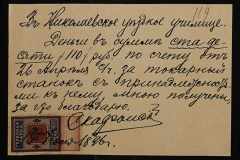 119
Въ Николаевское уѣздное училище.
Деньги въ суммѣ ста де-
сяти /110/ руб по счету отъ
Апрѣля с/г. за токарный
станокъ съ принадлежностя-
ми къ нему, мною получены,
за что благодарю.